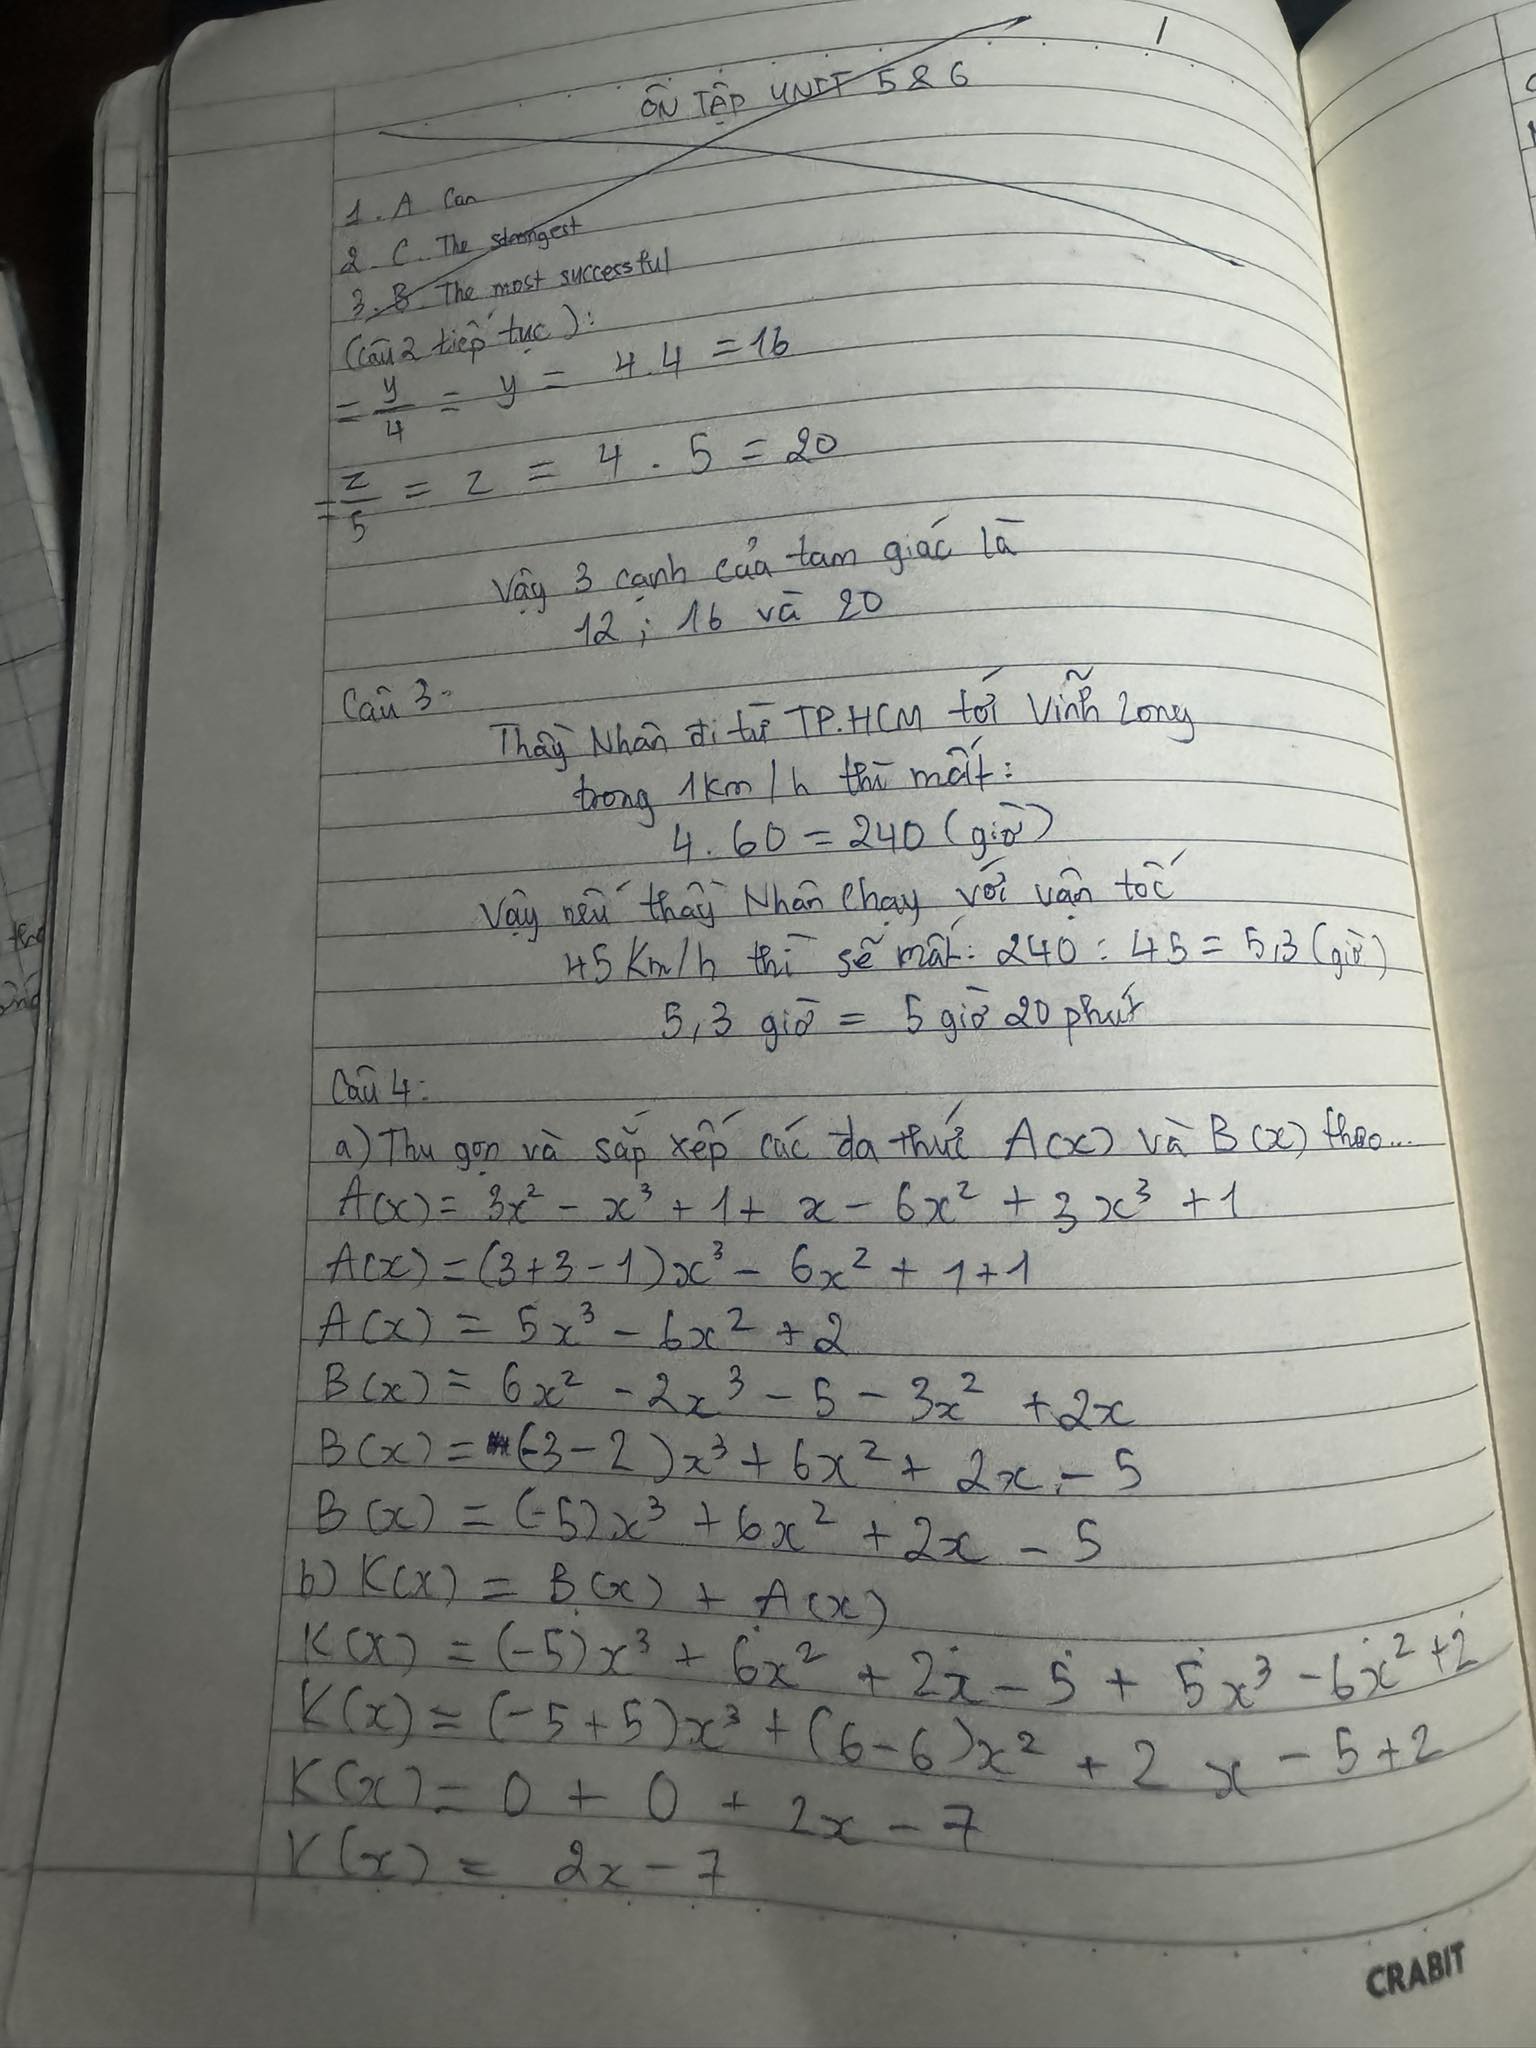 1
ÔN TẬP UNIT 5 & 6
1. A Can
2. C. The strongest
3. B. The most successful
(Câu 2 tiếp tục):
= y/4 = y = 4.4 = 16
= z/5 = z = 4.5 = 20
Vậy 3 cạnh của tam giác là
12; 16 và 20
Câu 3:
Thầy Nhân đi từ TP.HCM tới Vĩnh Long
trong 1km/h thì mất:
4.60 = 240 (giờ)
Vậy nếu thầy Nhân chạy với vận tốc
45 Km/h thì sẽ mất: 240 : 45 = 5,3 (giờ)
5,3 giờ = 5 giờ 20 phút
Câu 4:
a) Thu gọn và sắp xếp các đa thức A(x) và B(x) theo...
A(x) = 3x² - x³ + 1 + x - 6x² + 3x³ + 1
A(x) = (3+3-1)x³ - 6x² + 1+1
A(x) = 5x³ - 6x² + 2
B(x) = 6x² - 2x³ - 5 - 3x² + 2x
B(x) = (-3-2)x³ + 6x² + 2x - 5
B(x) = (-5)x³ + 6x² + 2x - 5
b) K(x) = B(x) + A(x)
K(x) = (-5)x³ + 6x² + 2x - 5 + 5x³ - 6x² + 2
K(x) = (-5+5)x³ + (6-6)x² + 2x - 5+2
K(x) = 0 + 0 + 2x - 7
K(x) = 2x - 7
CRABIT